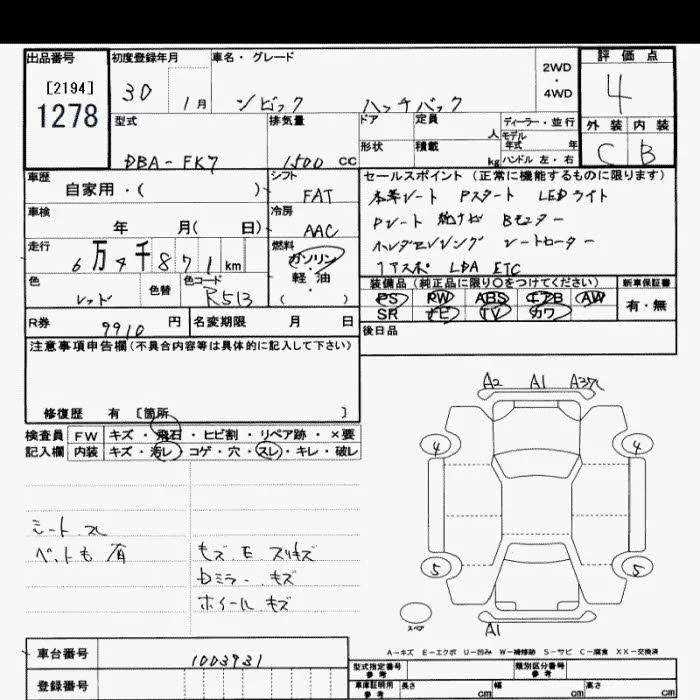 出品番号 初度登録年月 車名・グレード 評価点
[2194] 1278
30 1月 シビック ハッチバック 2WD・4WD 4
型式 排気量 ドア 定員 人 ディーラー・並行 外装 内装
モデル年式 年
DBA-FK7 1500 CC 形状 積載 kg ハンドル 左・右 C B
車歴 シフト セールスポイント(正常に機能するものに限ります)
自家用・( ) FAT 本革シート Pスタート LEDライト
車検 冷房 Pシート 純ナビ Bモニター
年 月( 日) AAC ホンダセンシング シートヒーター
走行 燃料 LDA ETC
6万4千871km ガソリン・軽油・( )
色 色替 色コード 装備品(純正品に限り○をつけてください) 新車保証書
レッド R513 PS PW ABS エアB AW 有・無
SR ナビ TV カワ
R券 9910 円 名変期限 月 日 後日品
注意事項申告欄(不具合内容等は具体的に記入して下さい)
修復歴 有 〔箇所 〕
A2 A1
検査員 FW キズ・飛石・ヒビ割・リペア跡・×要
記入欄 内装 キズ・汚レ・コゲ・穴・スレ・キレ・破レ
4 4
シート スレ
ペットも 有 キズ E スリキズ
5 5
Dミラー キズ
ホイール キズ
スペア
A1
A-キズ E-エクボ U-凹み W-補修跡 S-サビ C-腐食 XX-交換済
車台番号 1003931 型式指定番号 参考 類別区分番号 参考
登録番号 車庫証明用 参考 長さ cm 幅 cm 高さ cm